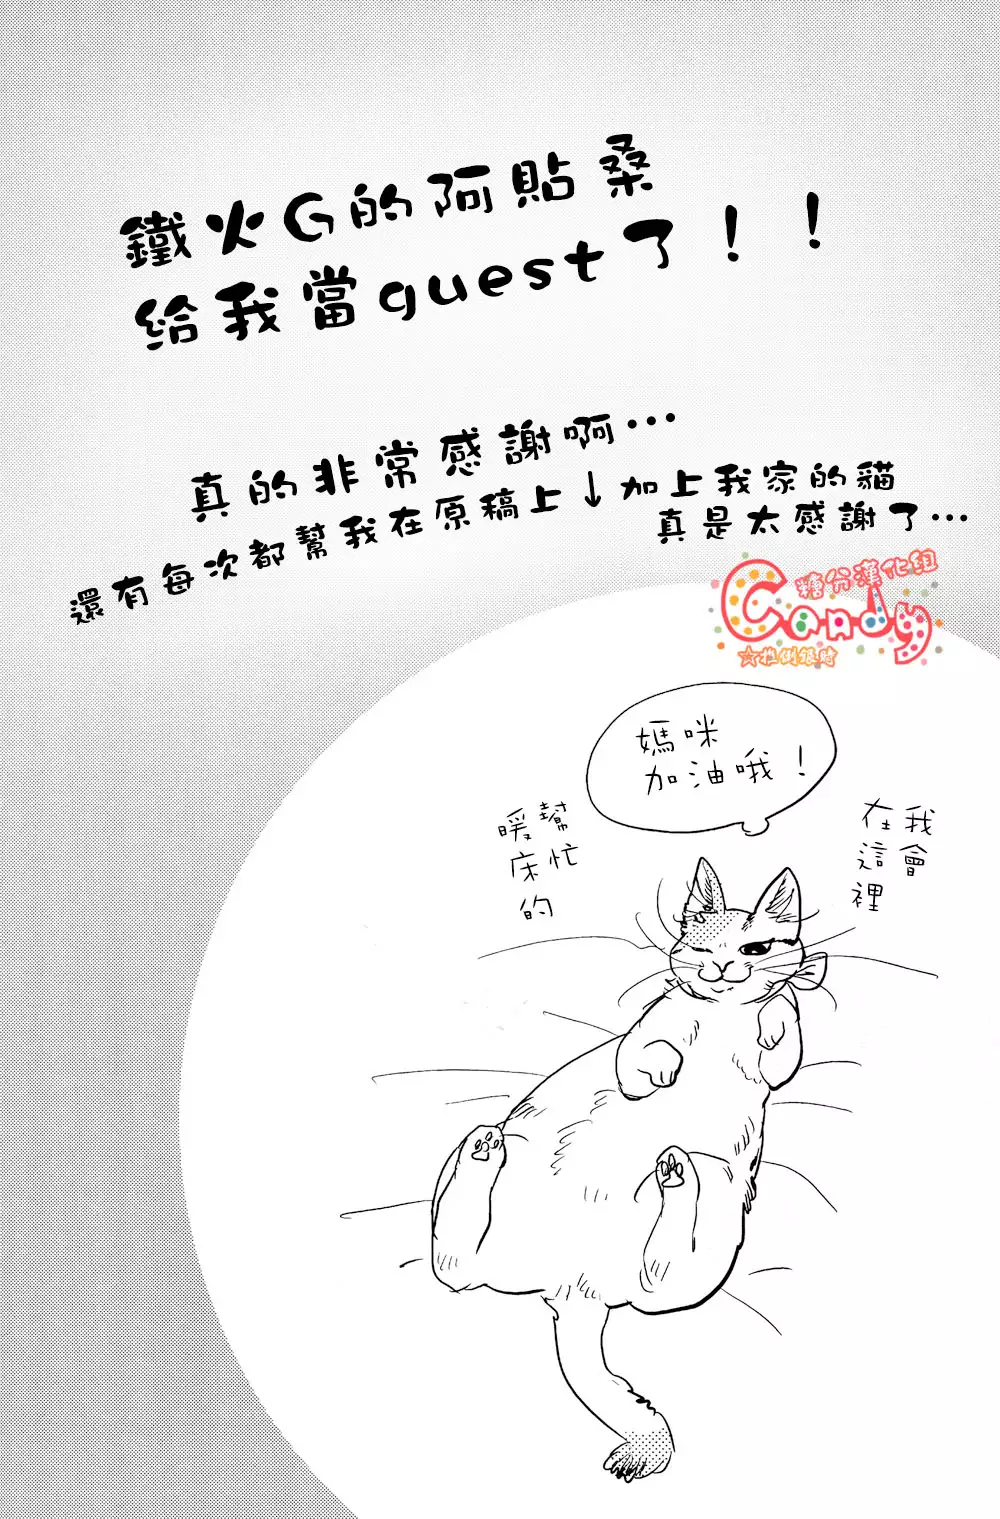 鐵火G的阿貼桑
給我當guest了！！
真的非常感謝啊⋯
還有每次都幫我在原稿上↓加上我家的貓
真是太感謝了⋯
糖分漢化組
Candy
☆推倒很時
媽咪
加油哦！
我會
在這裡
幫忙
暖床的